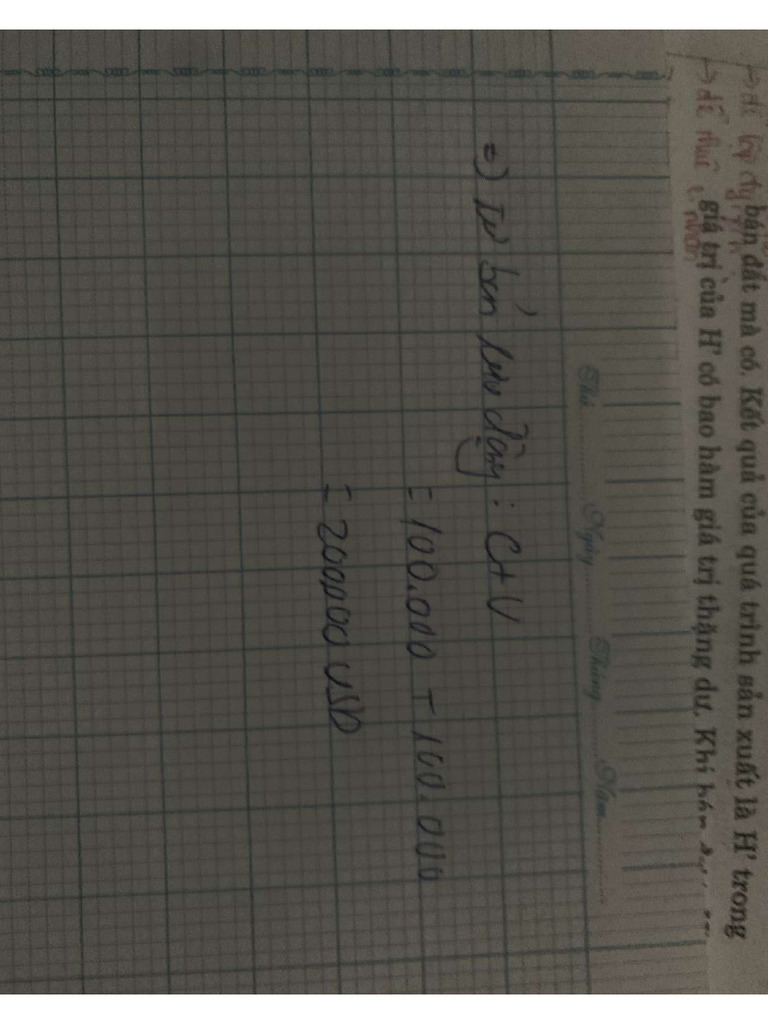 bán đắt mà có. Kết quả của quá trình sản xuất là H' trong
giá trị của H' có bao hàm giá trị thặng dư. Khi bán
→ dễ
→ dễ
t. nhân
Thứ Ngày Tháng Năm
=) TW bản lưu động : C+V
= 100.000 - 100.000
= 200,000 USD